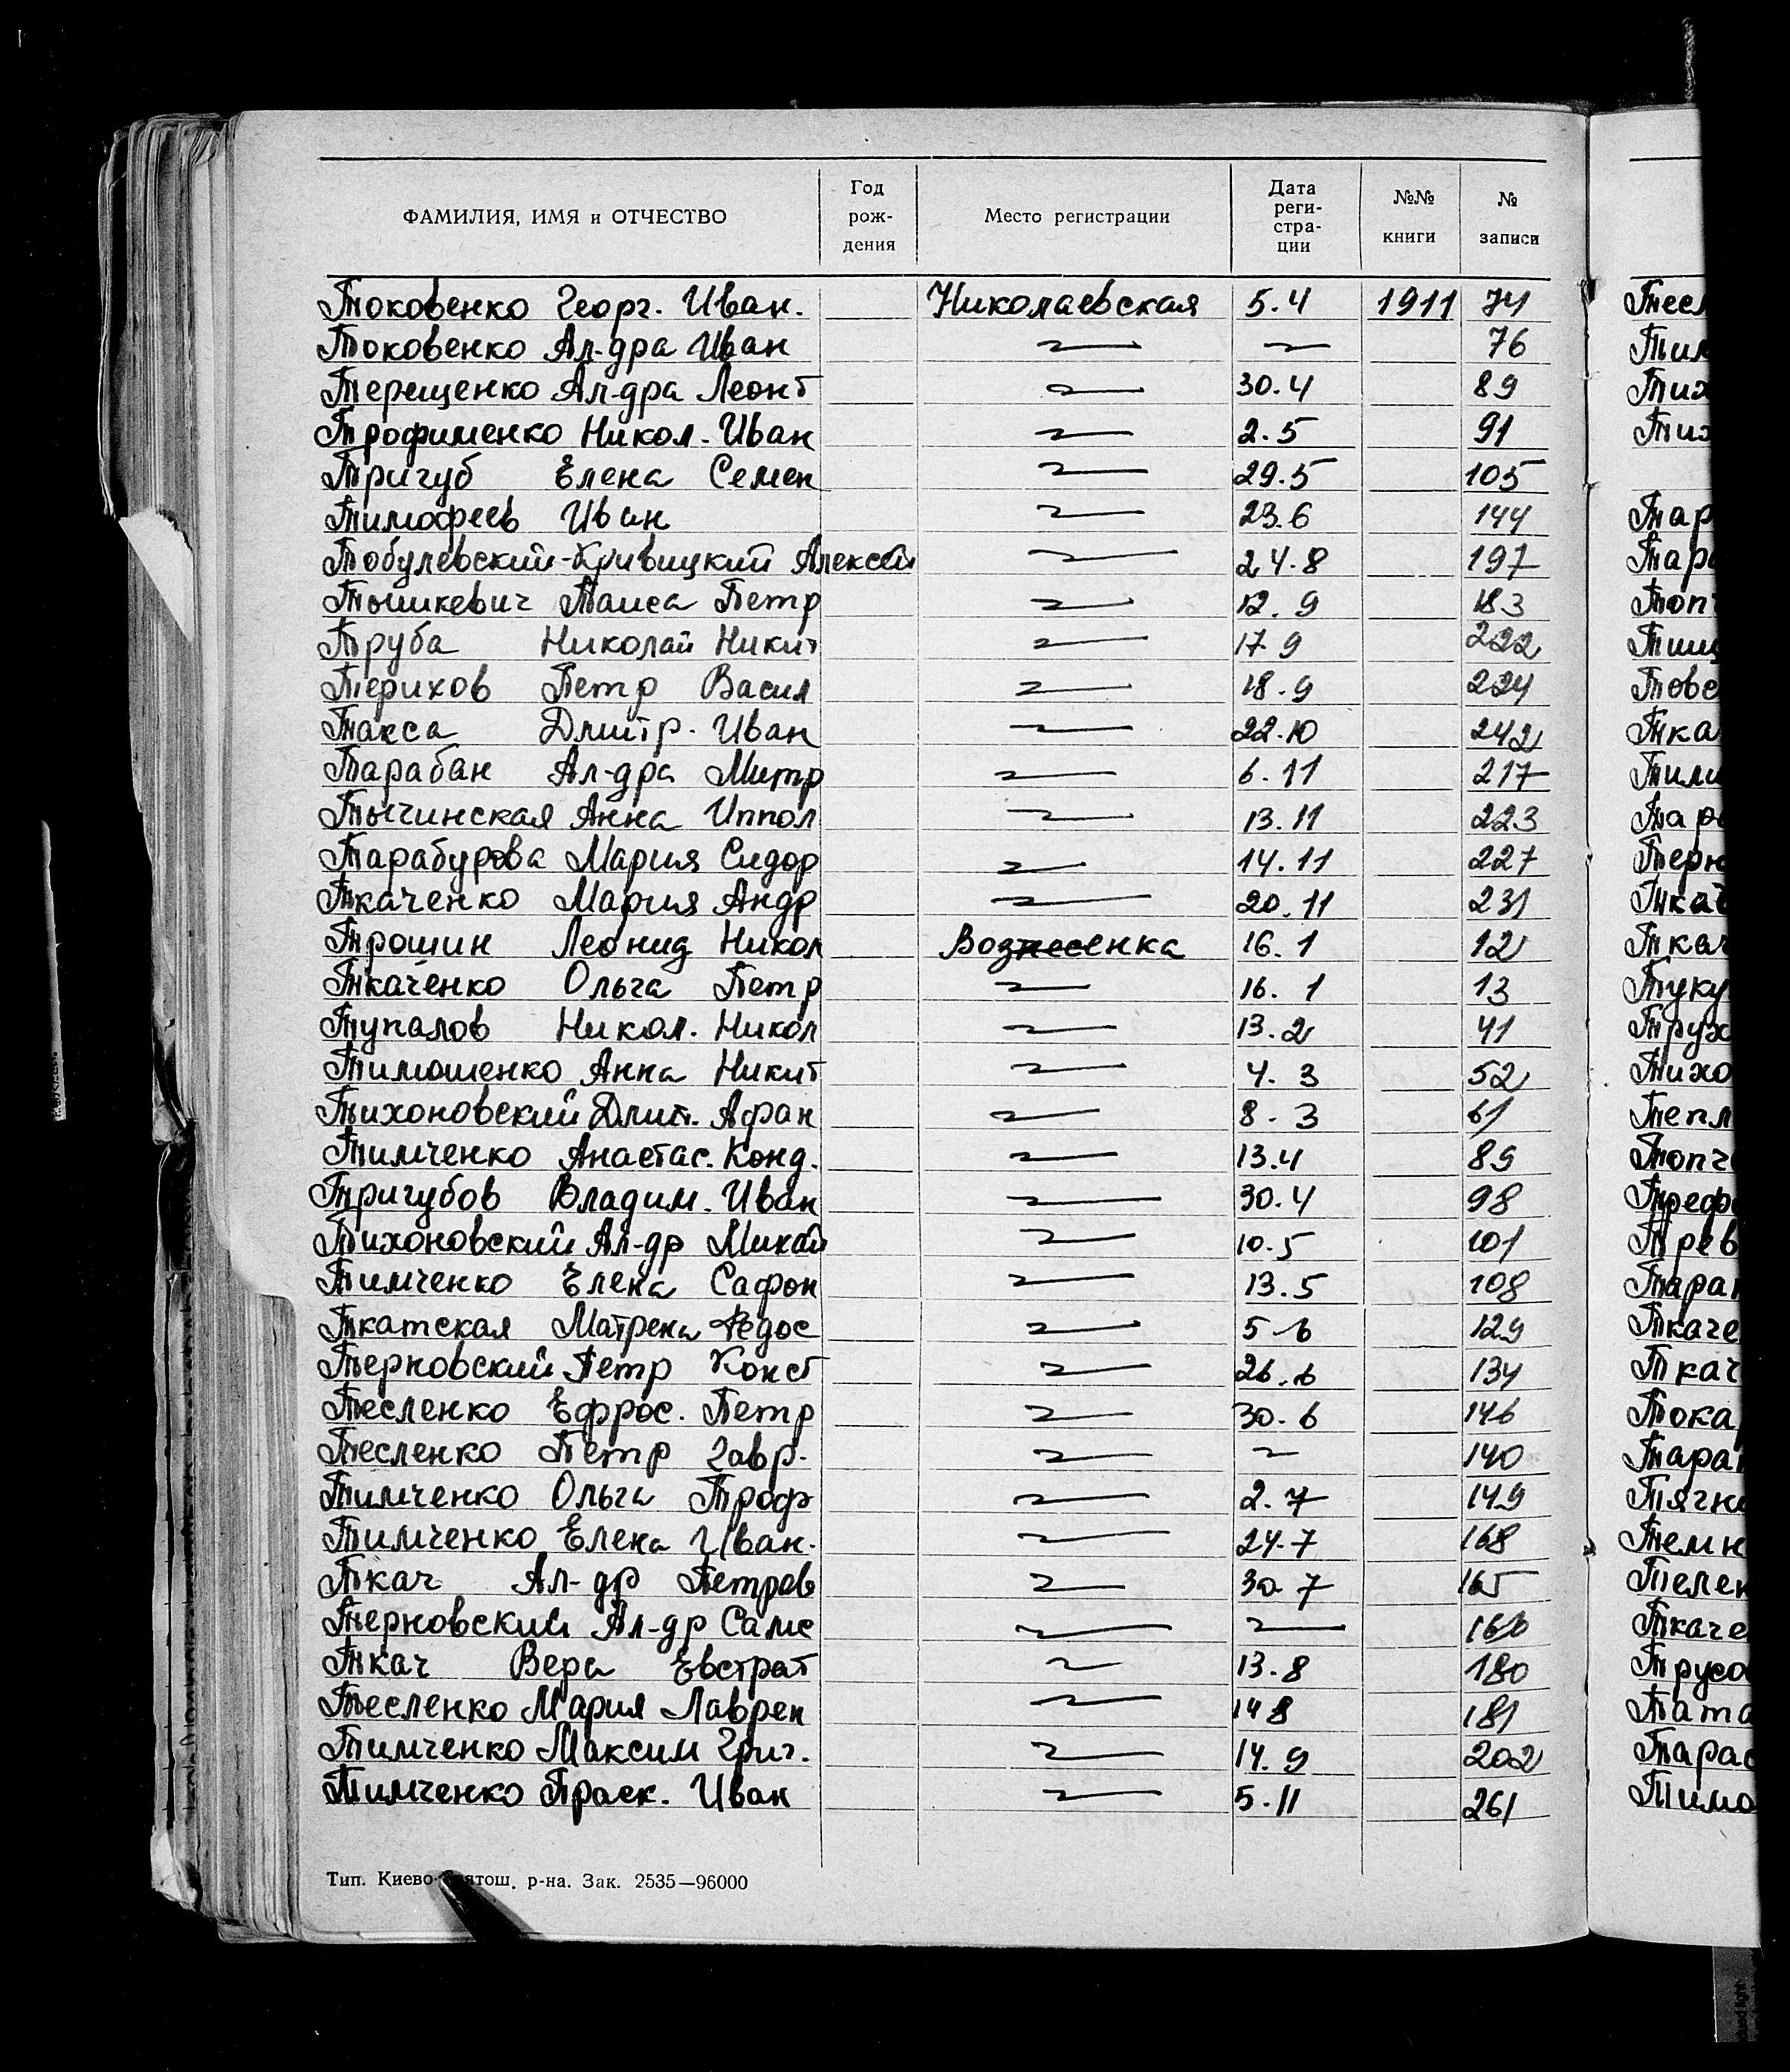 ФАМИЛИЯ, ИМЯ и ОТЧЕСТВО Год рож- дения Место регистрации Дата реги- стра- ции №№ книги № записи
Токовенко Георг. Иван. Николаевская 5.4 1911 74
Токовенко Ал-дра Иван 76
Терещенко Ал-дра Леонт 30.4 89
Трофименко Никол. Иван 2.5 91
Тригуб Елена Семен 29.5 105
Тимофеев Иван 23.6 144
Тобулевский-Кривицкий Алексей 24.8 197
Тышкевич Таиса Петр 12.9 183
Труба Николай Никит 17 9 222
Терихов Петр Васил 18.9 224
Такса Дмитр. Иван 22.10 242
Тарабан Ал-дра Митр 6.11 217
Тычинская Анна Иппол 13.11 223
Тарабурова Мария Сидор 14.11 227
Ткаченко Мария Андр 20.11 231
Трошин Леонид Никол Вознесенка 16.1 12
Ткаченко Ольга Петр 16. 1 13
Тупалов Никол. Никол 13.2 41
Тимошенко Анна Никит 4. 3 52
Тихоновский Дмит. Афан 8 - 3 61
Тимченко Анастас. Конд. 13.4 89
Тригубов Владим. Иван 30.4 98
Тихоновский Ал-др Михай 10.5 101
Тимченко Елена Сафон 13.5 108
Ткатская Матрена Федос 5-6 129
Терновский Петр Конст 26.6 134
Тесленко Ефрос. Петр 30.6 146
Тесленко Петр Гавр. 140
Тимченко Ольга Троф 2.7 149
Тимченко Елена Иван. 24.7 168
Ткач Ал-др Петров 30 7 165
Терновский Ал-др Саме 166
Ткач Вера Евстрат 13.8 180
Тесленко Мария Лаврен 14 8 181
Тимченко Максим Григ. 14.9 202
Тимченко Праск. Иван 5.11 261
Тип. Киево-Святош. р-на. Зак. 2535—96000